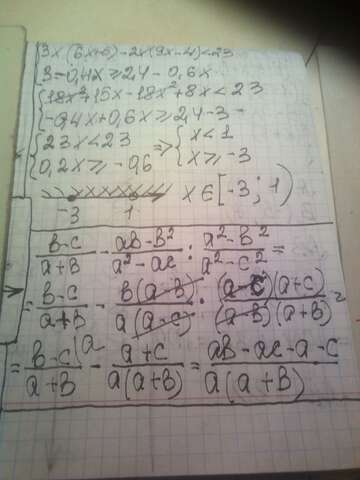 3x(6x+5)-2x(9x-4)<23
3-0,4x≥2,4-0,6x
18x²+15x-18x²+8x<23
-0,4x+0,6x≥2,4-3
23x<23 => x<1
0,2x≥-0,6 x≥-3
-3 1 x∈[-3; 1)
(b-c)/(a+b) - (ab-b²)/(a²-ac) : (a²-b²)/(a²-c²) =
= (b-c)/(a+b) - b(a-b)/a(a-c) · (a-c)(a+c)/(a-b)(a+b) =
= (b-c)/(a+b) (a - (a+c)/a(a+b) = (ab-ac-a-c)/a(a+b)